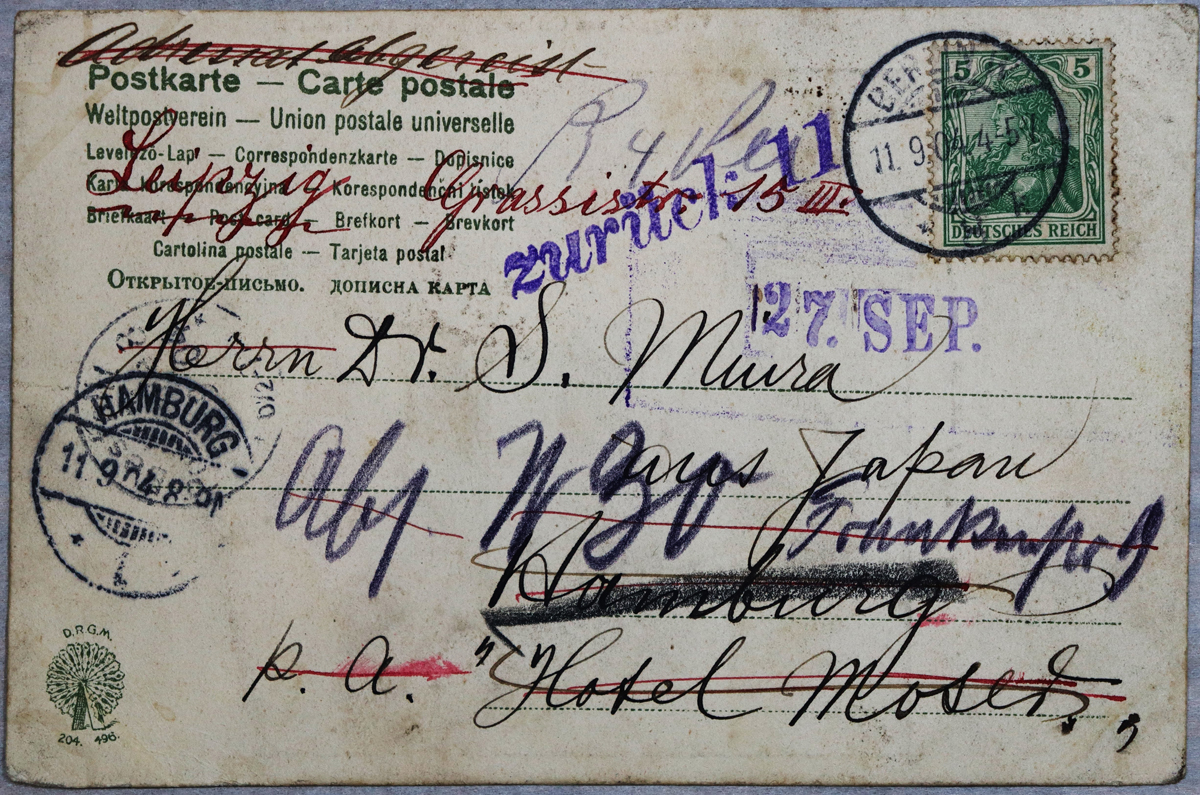 Adressat abgereist
Postkarte — Carte postale
Weltpostverein — Union postale universelle
Levelező-Lap — Correspondenzkarte — Dopisnice
Karta Korespondencyjna — Korespondenční lístek
Briefkaart — Post card — Brefkort — Brevkort
Cartolina postale — Tarjeta postal
Открытое-письмо. дописна карта
Leipzig Grassistr. 15 III.
zurück 11
5 5
DEUTSCHES REICH
BERLIN
11. 9. 04. 4-5 N.
27. SEP.
Herrn Dr. S. Miura
HAMBURG
11. 9. 04. 8-9 N
aus Japan
Abs
Hamburg
p. a. "Hotel Moser"
D.R.G.M.
204. 496.